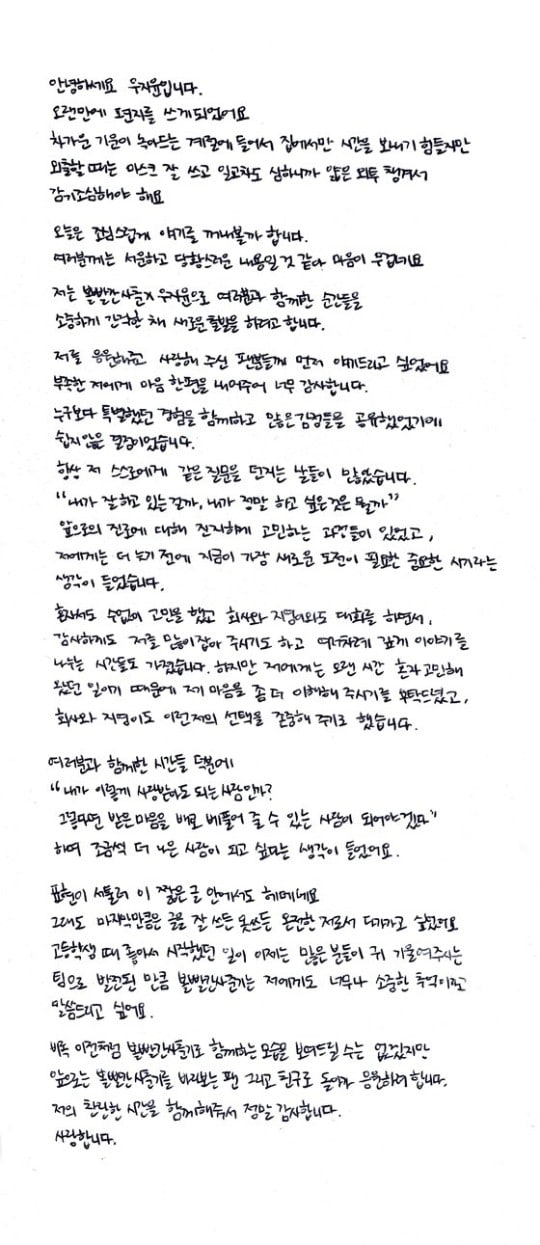 안녕하세요 우지윤입니다.
오랜만에 편지를 쓰게되었어요
차가운 기운이 녹아드는 계절에 들어서 집에서만 시간을 보내기 힘들지만
외출할 때는 마스크 잘 쓰고 일교차도 심하니까 얇은 외투 챙겨서
감기조심해야 해요
오늘은 조심스럽게 얘기를 꺼내볼까 합니다.
여러분께는 서운하고 당황스러운 내용일 것 같아 마음이 무겁네요
저는 볼빨간사춘기 우지윤으로 여러분과 함께한 순간들을
소중하게 간직한 채 새로운 출발을 하려고 합니다.
저를 응원해주고 사랑해 주신 팬분들께 먼저 얘기드리고 싶었어요
부족한 저에게 마음 한편을 내어주어 너무 감사합니다.
누구보다 특별했던 경험을 함께하고 많은 감정들을 공유했었기에
쉽지않은 결정이었습니다.
항상 저 스스로에게 같은 질문을 던지는 날들이 많았습니다.
“내가 잘 하고 있는걸까, 내가 정말 하고 싶은 것은 뭘까”
앞으로의 진로에 대해 진지하게 고민하는 과정들이 있었고,
저에게는 더 늦기 전에 지금이 가장 새로운 도전이 필요한 중요한 시기라는
생각이 들었습니다.
혼자서도 수없이 고민을 했고 회사와 지영이와도 대화를 하면서,
감사하게도 저를 많이 잡아 주시기도 하고 여러차례 깊게 이야기를
나누는 시간들도 가졌습니다. 하지만 저에게는 오랜 시간 혼자 고민해
왔던 일이기 때문에 제 마음을 좀 더 이해해 주시기를 부탁드렸고,
회사와 지영이도 이런 저의 선택을 존중해 주기로 했습니다.
여러분과 함께한 시간들 덕분에
“내가 이렇게 사랑받아도 되는 사람인가?
그렇다면 받은 마음을 배로 베풀어 줄 수 있는 사람이 되어야겠다”
하며 조금씩 더 나은 사람이 되고 싶다는 생각이 들었어요.
표현이 서툴러 이 짧은 글 안에서도 헤매네요
그래도 마지막만큼은 글을 잘 쓰든 못쓰든 온전한 저로서 다가가고 싶었어요
고등학생 때 좋아서 시작했던 일이 이제는 많은 분들이 귀 기울여주시는
팀으로 발전된 만큼 볼빨간사춘기는 저에게도 너무나 소중한 추억이라고
말씀드리고 싶어요.
비록 이전처럼 볼빨간사춘기로 함께하는 모습을 보여드릴 수는 없겠지만
앞으로는 볼빨간사춘기를 바라보는 팬 그리고 친구로 돌아가 응원하려 합니다.
저의 찬란한 시간을 함께해주셔서 정말 감사합니다.
사랑합니다.